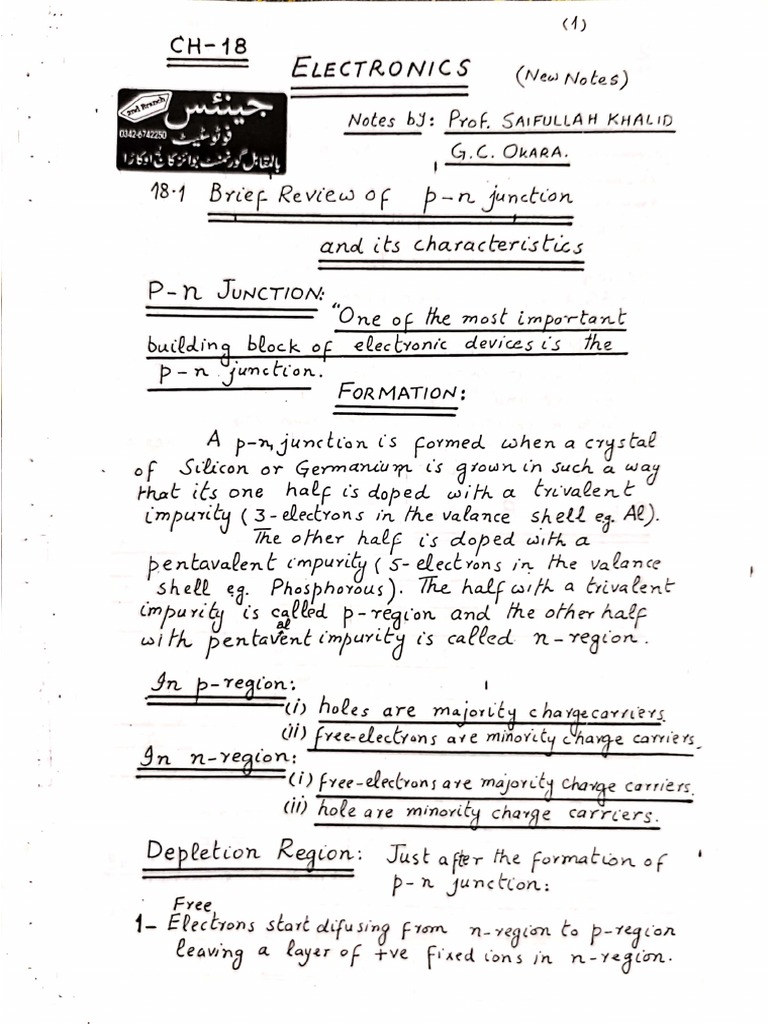 (1)
CH-18
ELECTRONICS
(New Notes)
2nd Branch
جینئس
0342-6742250
فوٹوسٹیٹ
بالمقابل گورنمنٹ بوائز کالج اوکاڑا
Notes by: Prof. SAIFULLAH KHALID
G.C. OKARA.
18.1 Brief Review of p-n junction
and its characteristics
P-n JUNCTION:
"One of the most important
building block of electronic devices is the
p-n junction.
FORMATION:
A p-n junction is formed when a crystal
of Silicon or Germanium is grown in such a way
that its one half is doped with a trivalent
impurity (3-electrons in the valance shell eg. Al).
The other half is doped with a
pentavalent impurity (5-electrons in the valance
shell eg. Phosphorous). The half with a trivalent
impurity is called p-region and the other half
with pentavalent impurity is called n-region.
In p-region:
(i) holes are majority chargecarriers
(ii) free-electrons are minority charge carriers.
In n-region:
(i) free-electrons are majority charge carriers.
(ii) hole are minority charge carriers.
Depletion Region: Just after the formation of
p-n junction:
Free
1- Electrons start difusing from n-region to p-region
leaving a layer of +ve fixed ions in n-region.